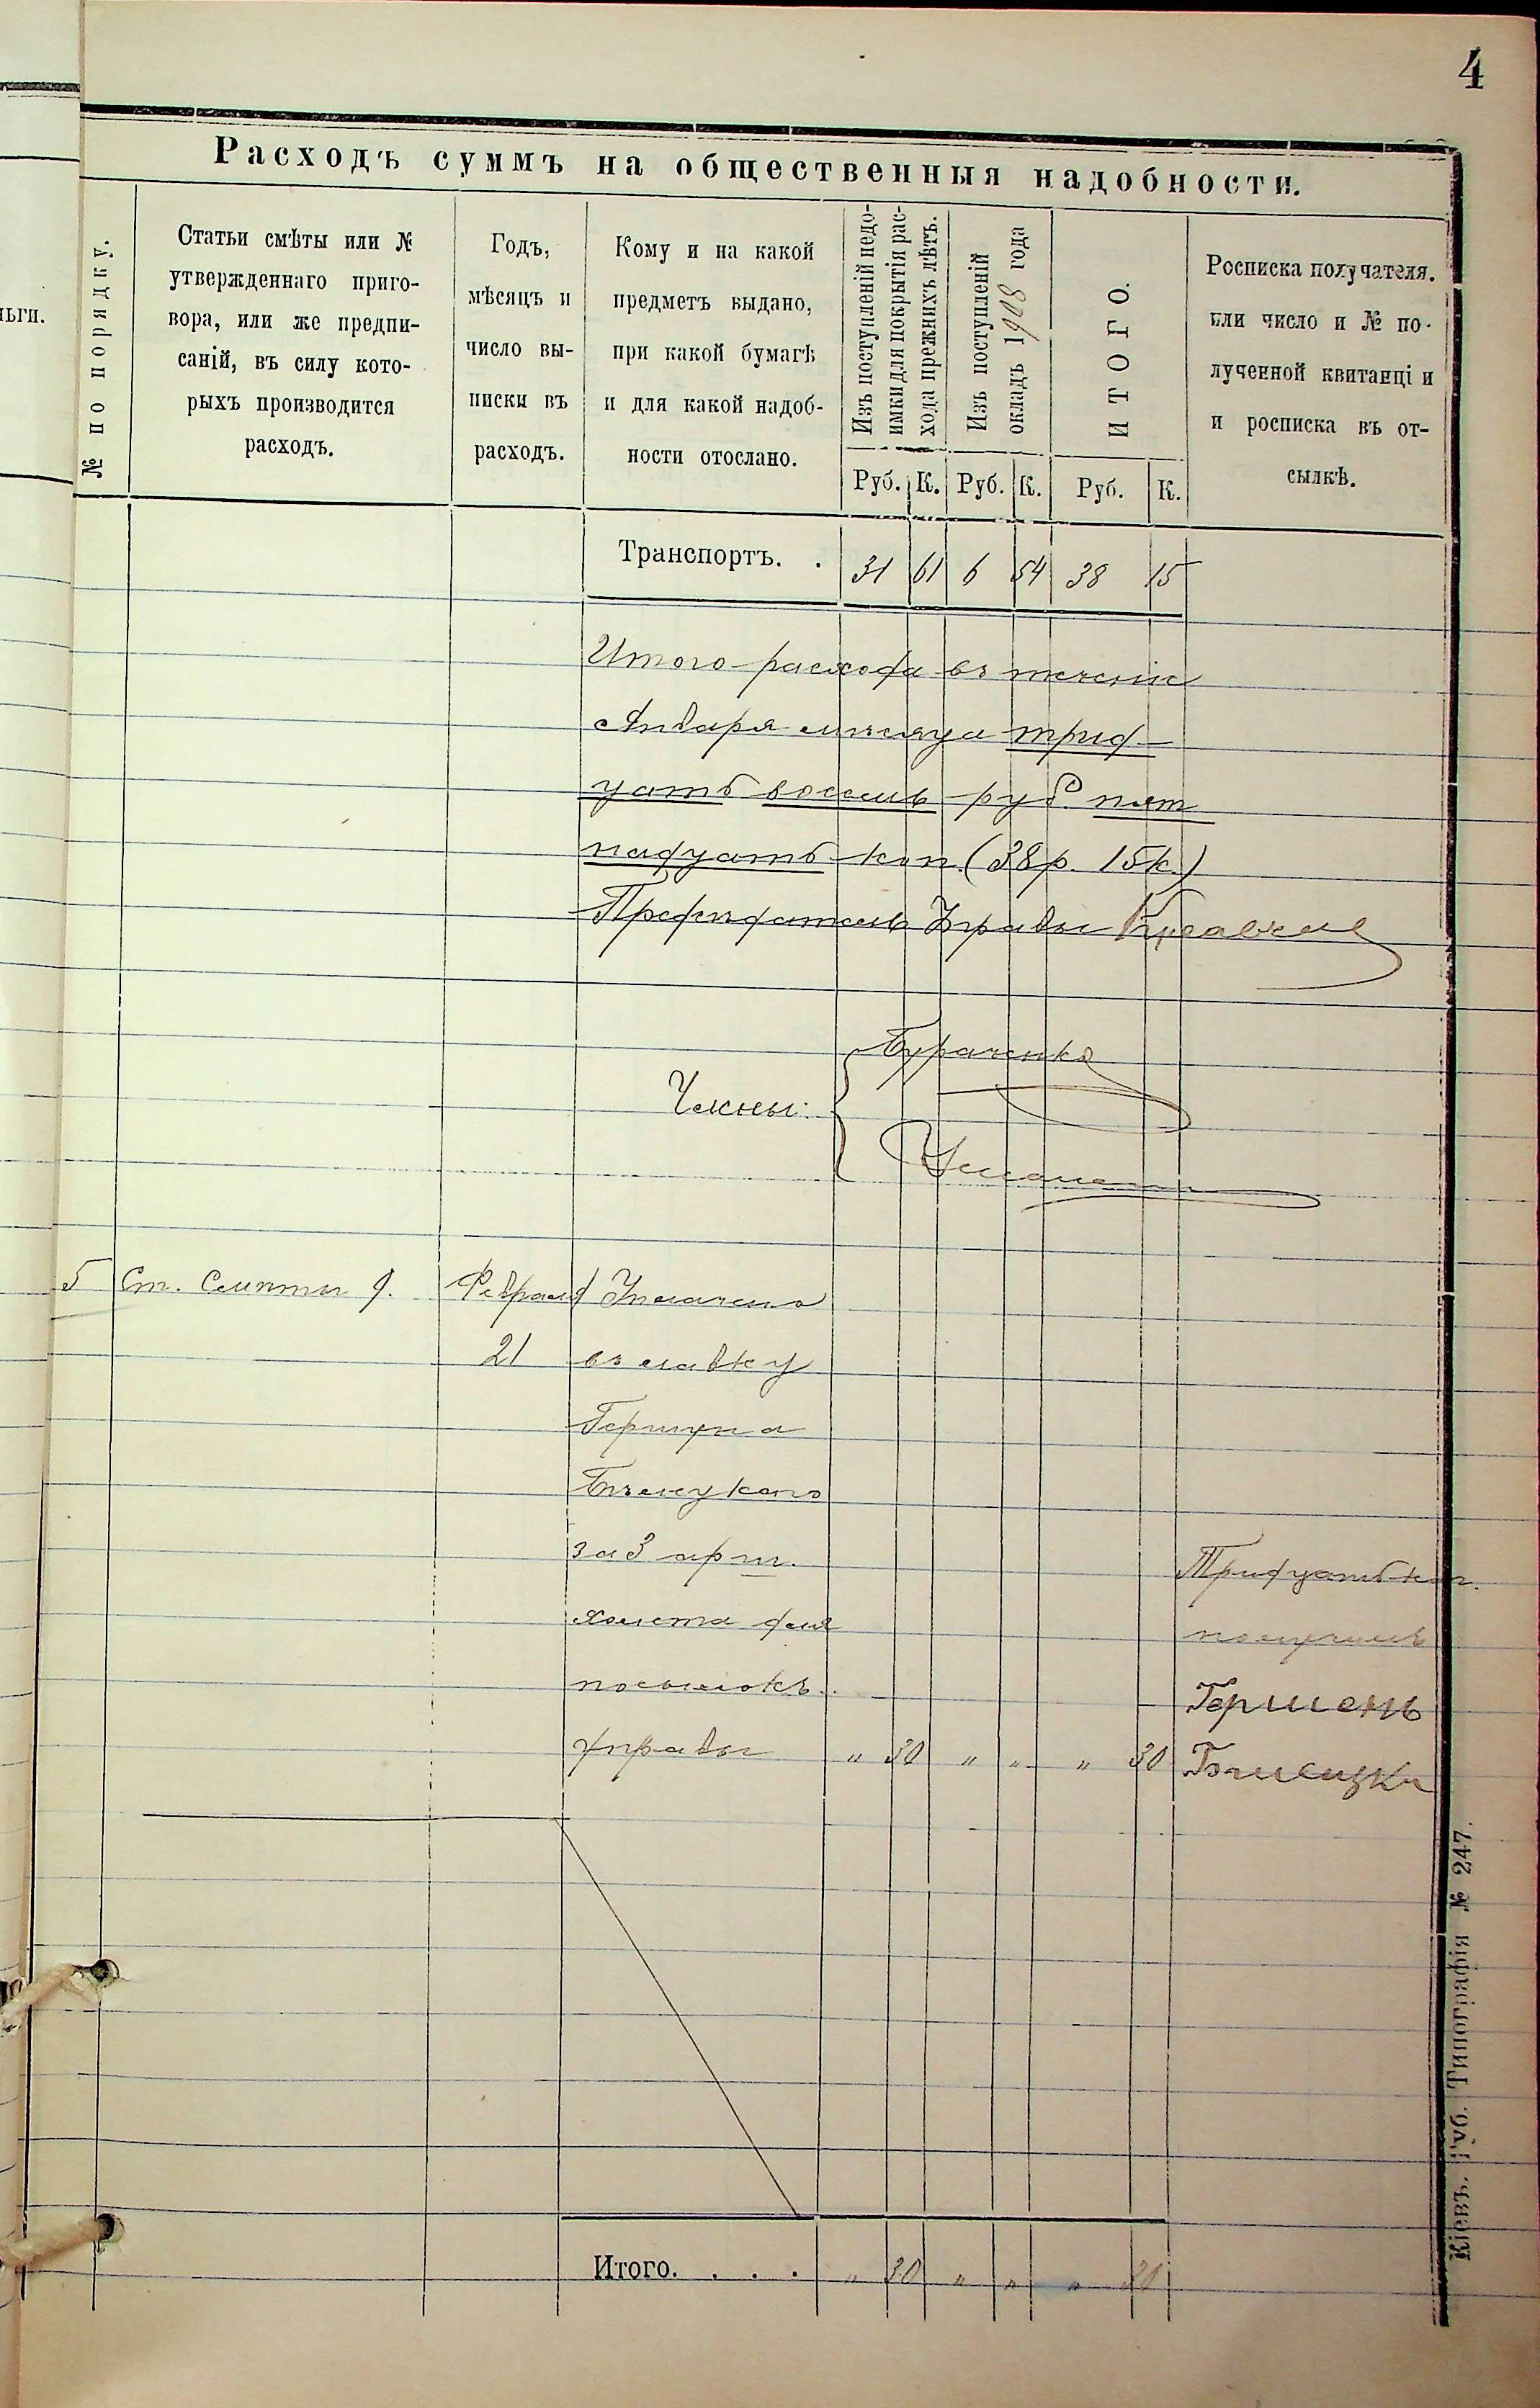 4
Расходъ суммъ на общественныя надобности.
№ по порядку.
Статьи смѣты или №
утвержденнаго приго-
вора, или же предпи-
саній, въ силу кото-
рыхъ производится
расходъ.
Годъ,
мѣсяцъ и
число вы-
писки въ
расходъ.
Кому и на какой
предметъ выдано,
при какой бумагѣ
и для какой надоб-
ности отослано.
Изъ поступленій недо-
имки для покрытія рас-
хода прежнихъ лѣтъ.
Изъ поступленій
окладъ 1908 года
ИТОГО.
Росписка получателя.
или число и № по-
лученной квитанціи
и росписка въ от-
сылкѣ.
Руб. К. Руб. К. Руб. К.
ньги.
Транспортъ. . 31 61 6 54 38 15
Итого расхода въ теченіе
Января мѣсяца трид-
цать восемь руб пят
надцать коп. (38р. 15к.)
Предсѣдатель Управы
Бураченко
Члены:
5 Ст. Смѣты 9. Февраля Уплачено
21 въ лавку
Гершуна
за 3 арш.
холста для
посылокъ
Управы " 30 " " " 30
Тридцать коп.
получилъ
Гершенъ
Итого. . . . " 30 " " " 30
Кіевъ. Губ. Типографія № 247.